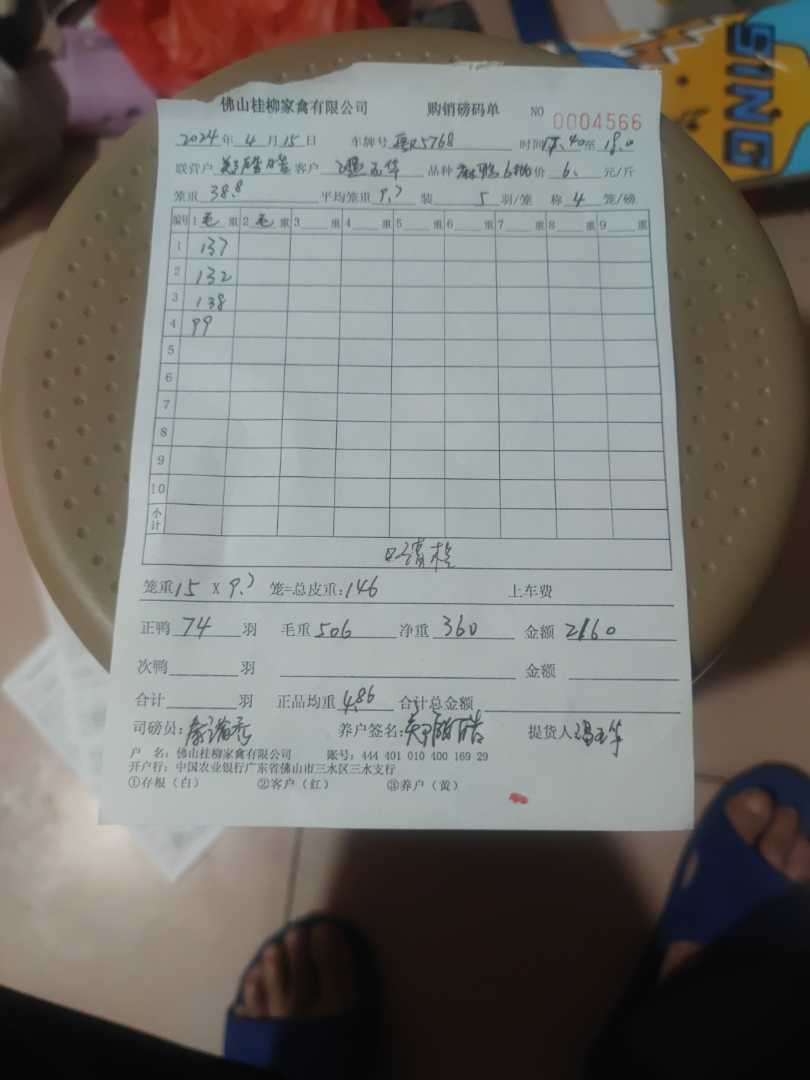 佛山桂柳家禽有限公司 购销磅码单 NO 0004566
2024年4月15日 车牌号 R5768 时间 .40至18.0
联营户 客户 玉华 品种 麻鸭 价6.元/斤
笼重38.8 平均笼重9.7 装5羽/笼 称4笼/磅
编号 1毛重 2毛重 3重 4重 5重 6重 7重 8重 9重
1 137
2 132
3 138
4 99
5
6
7
8
9
10
小计
口清枱
笼重15X9.7笼=总皮重:146 上车费
正鸭74羽 毛重506 净重360 金额2160
次鸭 羽 金额
合计 羽 正品均重4.86 合计总金额
司磅员: 养户签名: 提货人 玉华
户 名:佛山桂柳家禽有限公司 账号:444 401 010 400 169 29
开户行:中国农业银行广东省佛山市三水区三水支行
①存根(白) ②客户(红) ③养户(黄)
SING